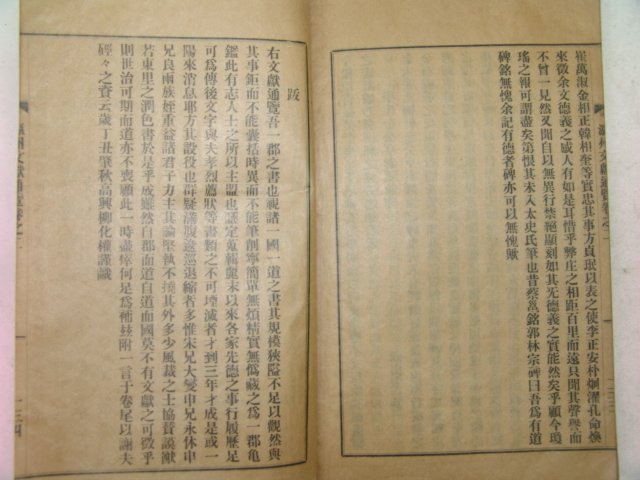 崔萬淑金相正韓相奎等實忠其事方貞珉以表之使李正安朴炯濯孔命煥
來徵余文德義之感人有如是耳惜乎弊庄之相距百里而遠只聞其聲譽而
不曾一見然又聞自以無異行禁絕顯刻如其旡德義之實能然矣乎顧今瓊
瑤之報可謂盡矣第恨其未入太史氏筆也昔蔡邕銘郭林宗碑曰吾爲有道
碑銘無愧余記有德者碑亦可以無愧歟
跋
右文獻通覽吾一郡之書也視諸一國一道之書其規模狹隘不足以觀然與
其事鉅而不能囊括時異而不能筆削寧簡單無煩精實無僞藏之爲一郡龜
鑑此有志人士之所以主盟也歷定蒐輯麗末以來各家先德之事行履歷足
可爲傳後文字與夫孝烈薦狀等書類之不可堙滅者才到三年才成是或一
陽來消息耶方其設役也群疑滿腹逡巡退縮者多惟宋兄大燮申兄永休申
兄良雨族姪重益諸君子力主其論堅執不撓其外多少風裁之士協賛謨猷
若東里之潤色書於是乎成雖然自郡而道自道而國莫不有文獻之可徵乎
則世治可期而道亦不喪顧此一時盡瘁何足爲術玆附一言于卷尾以謝夫
硜々之責云歲丁丑肇秋高興柳化權謹識
州文獻通覽卷之二
一三四